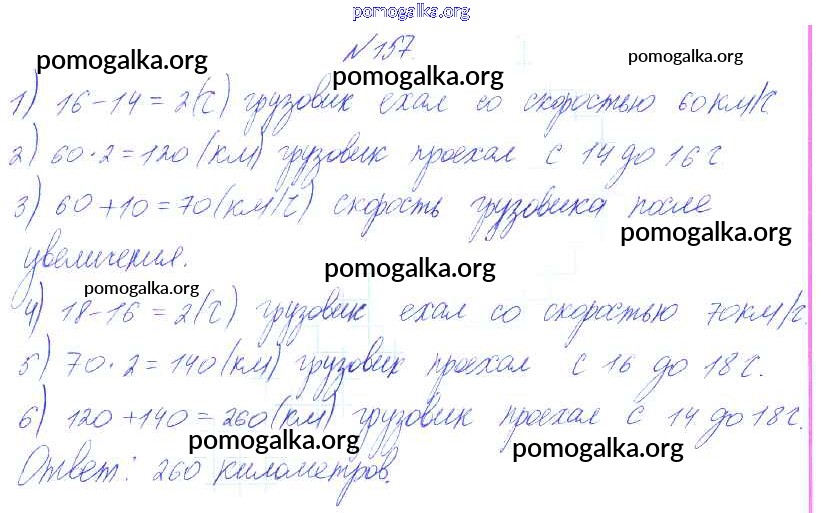 pomogalka.org
№157.
pomogalka.org pomogalka.org pomogalka.org
1) 16-14=2(ч) грузовик ехал со скоростью 60км/ч
2) 60·2=120(км) грузовик проехал с 14 до 16ч
3) 60+10=70(км/ч) скорость грузовика после
pomogalka.org
увеличения.
pomogalka.org
pomogalka.org
4) 18-16=2(ч) грузовик ехал со скоростью 70км/ч.
5) 70·2=140(км) грузовик проехал с 16 до 18ч.
6) 120+140=260(км) грузовик проехал с 14 до 18ч.
pomogalka.org pomogalka.org
Ответ: 260 километров.